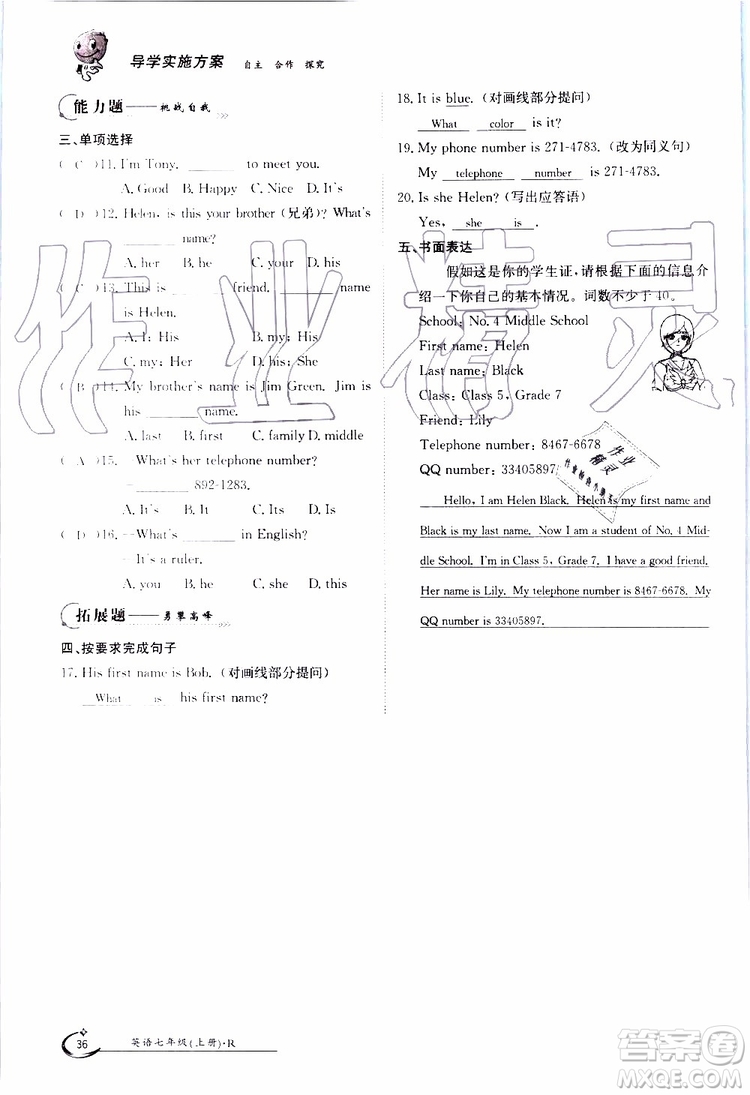 导学实施方案 自主 合作 探究
能力题——挑战自我
三、单项选择
( C )11. I'm Tony, ________ to meet you.
A. Good B. Happy C. Nice D. It's
( D )12. Helen, is this your brother (兄弟)? What's
________ name?
A. her B. he C. your D. his
( C )13. This is ________ friend. ________ name
is Helen.
A. I; His B. my; His
C. my; Her D. his; She
( B )14. My brother's name is Jim Green. Jim is
his ________ name.
A. last B. first C. family D. middle
( A )15. —What's her telephone number?
—________ 892-1283.
A. It's B. It C. Its D. Is
( D )16. —What's ________ in English?
—It's a ruler.
A. you B. he C. she D. this
拓展题——勇攀高峰
四、按要求完成句子
17. His first name is Bob. (对画线部分提问)
What is his first name?
18. It is blue. (对画线部分提问)
What color is it?
19. My phone number is 271-4783. (改为同义句)
My telephone number is 271-4783.
20. Is she Helen? (写出应答语)
Yes, she is .
五、书面表达
假如这是你的学生证，请根据下面的信息介
绍一下你自己的基本情况。词数不少于 40。
School: No. 4 Middle School
First name: Helen
Last name: Black
Class: Class 5, Grade 7
Friend: Lily
Telephone number: 8467-6678
QQ number: 33405897
Hello, I am Helen Black. Helen is my first name and
Black is my last name. Now I am a student of No. 4 Mid-
dle School. I'm in Class 5, Grade 7. I have a good friend.
Her name is Lily. My telephone number is 8467-6678. My
QQ number is 33405897.
作业精灵
作业精灵
36 英语七年级(上册)·R
答案圈
MXQE.COM